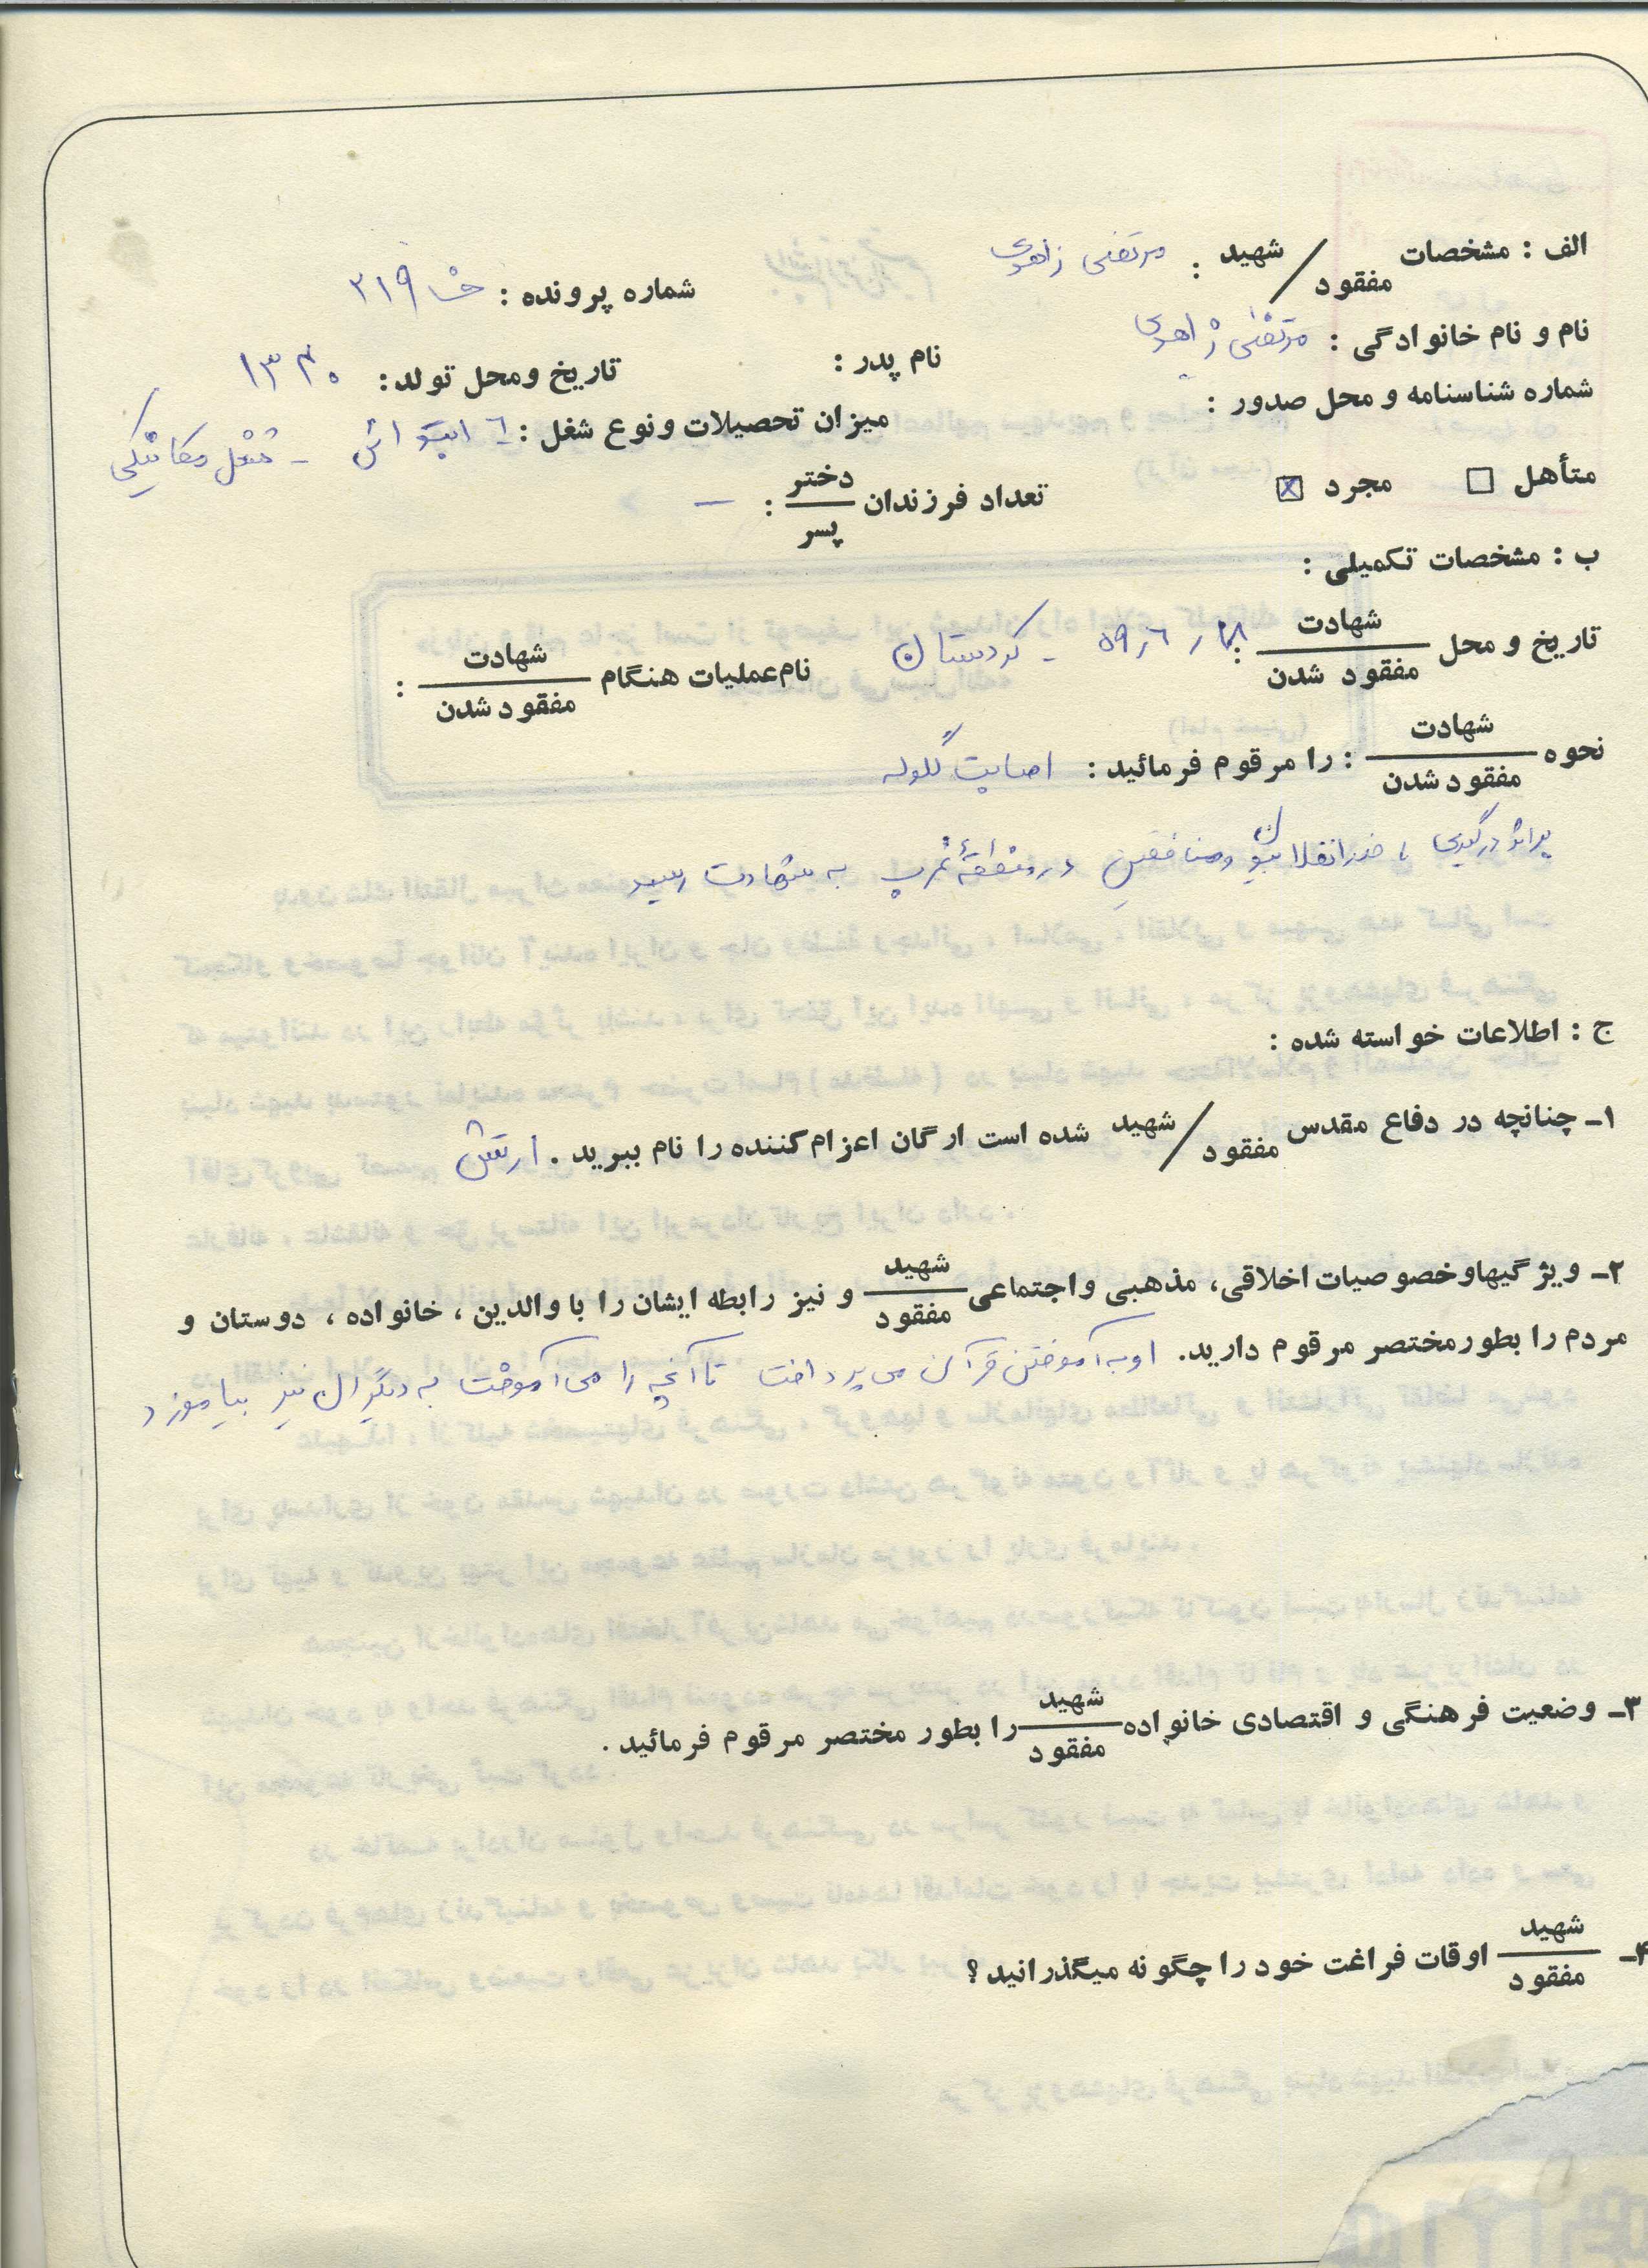 الف : مشخصات شهید / مفقود : مرتضی زاهدی
شماره پرونده : خ ۳۱۹
نام و نام خانوادگی : مرتضی زاهدی
نام پدر :
تاریخ ومحل تولد : ۱۳۴۰
شماره شناسنامه و محل صدور :
میزان تحصیلات ونوع شغل : ۶ ابتدائی - شغل مکانیکی
متأهل ☐ مجرد ☒
تعداد فرزندان دختر / پسر : —
ب : مشخصات تکمیلی :
تاریخ و محل شهادت / مفقود شدن : ۵۹٫۶٫۲۸ - کردستان
نام عملیات هنگام شهادت / مفقود شدن :
نحوه شهادت / مفقود شدن : را مرقوم فرمائید : اصابت گلوله
براثر درگیری با ضدانقلابیون ومنافقین در منطقهٔ غرب به شهادت رسید
ج : اطلاعات خواسته شده :
۱- چنانچه در دفاع مقدس شهید / مفقود شده است ارگان اعزام کننده را نام ببرید . ارتش
۲- ویژگیهاوخصوصیات اخلاقی، مذهبی واجتماعی شهید / مفقود و نیز رابطه ایشان را با والدین ، خانواده ، دوستان و
مردم را بطورمختصر مرقوم دارید. او به آموختن قرآن می پرداخت تا آنچه را می آموخت به دیگران نیز بیاموزد
۳- وضعیت فرهنگی و اقتصادی خانواده شهید / مفقود را بطور مختصر مرقوم فرمائید .
۴- شهید / مفقود اوقات فراغت خود را چگونه میگذرانید ؟